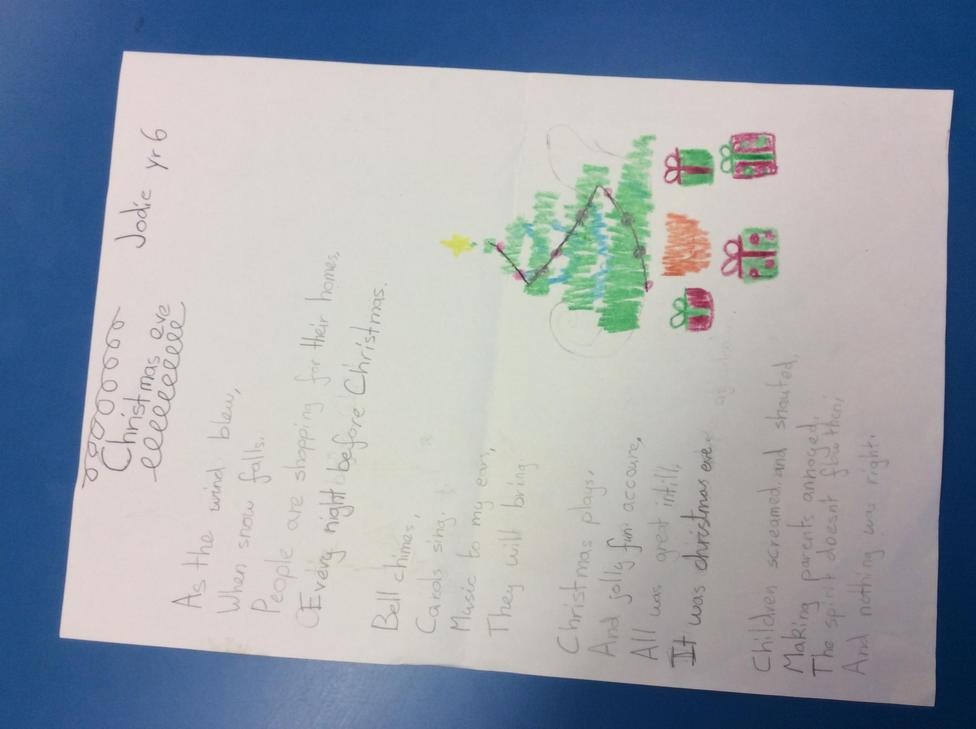 Christmas eve
Jodie yr 6
As the wind blew,
When snow falls.
People are shopping for their homes,
Every night before Christmas.
Bell chimes,
Carols sing.
Music to my ears,
They will bring
Christmas plays.
And jolly fun accoure,
All was great intill,
It was christmas eve
Children screamed and shouted,
Making parents annoyed.
The spirit doesnt flow then,
And nothing was right.